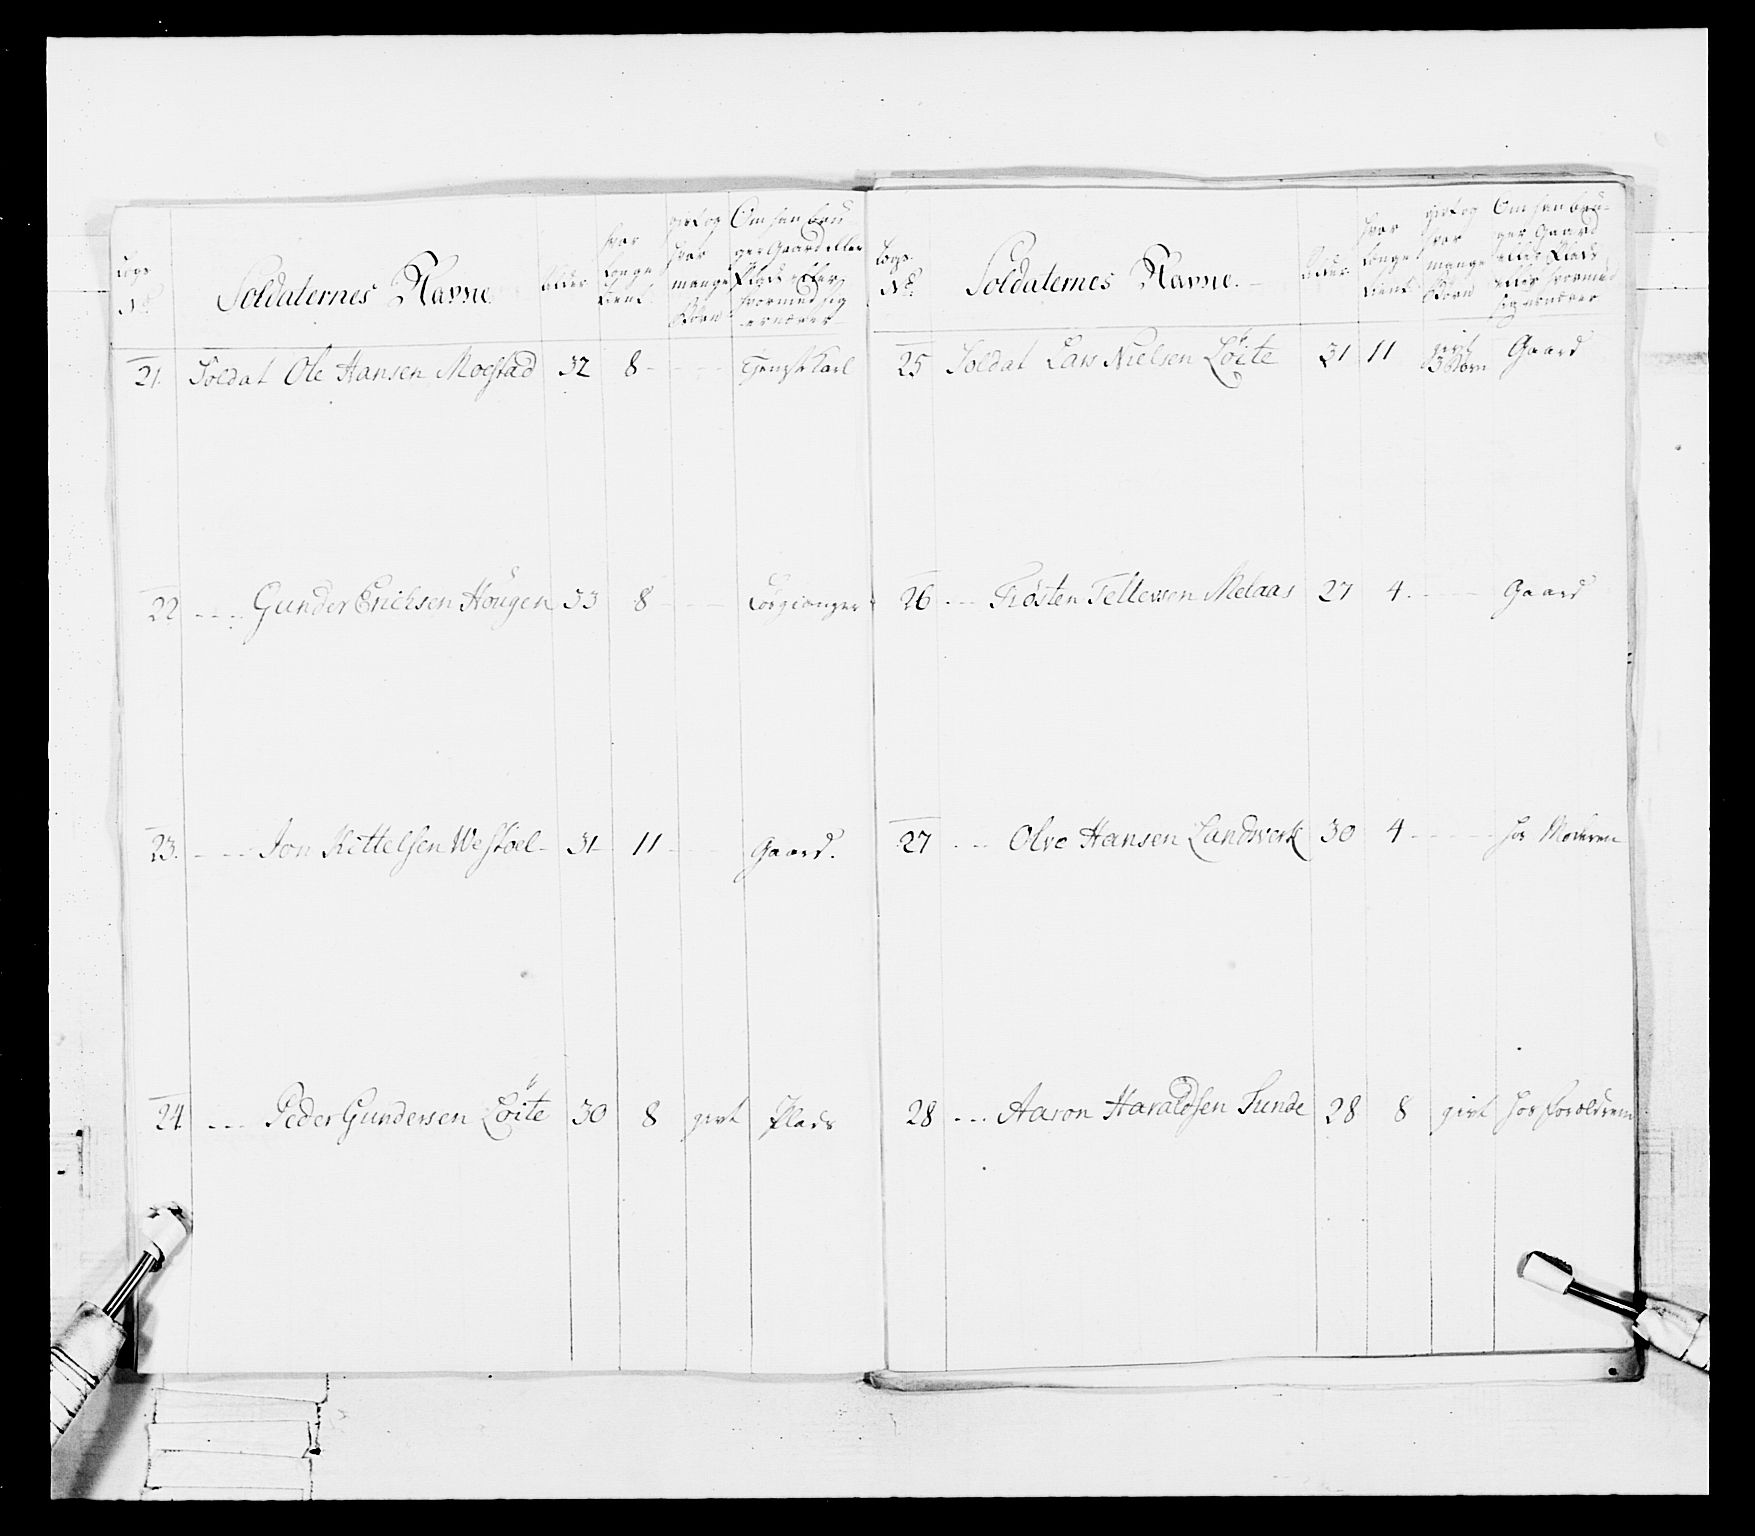 Logs No
Soldaternes Navne
Alder
hvor Længe tient
givt og hvor mange Børn
Om han bru-
ger Gaard eller
Plads eller
hvormed sig
ernærer
21. Soldat Ole Hansen Moestad 32 8 - - - - Tienste Karl
22 - - - Gunder Erichsen Hougen 33 8 - - - Losgiænger
23. - - - Jon Kittelsen Westøel - 31 11 - - Gaard.
24 - - - Peder Gundersen Löite 30 8 givt Plads
Logs No
Soldaternes Navne.
Alder
hvor Længe tient
givt og hvor mange Børn
Om han bru-
ger Gaard
eller Plads
eller hvormed
sig ernærer
25 Soldat Lars Nielsen Löite 31 11 givt 3 Børn Gaard
26 - - - Tiøsten Tellevsen Melaas 27 4. - - - - Gaard
27 - - - Olve Hansen Landverk 30 4 - - - - - hos Moderen
28 - - - Aaron Haraldsen Sunde 28 8 givt hos Forældrene